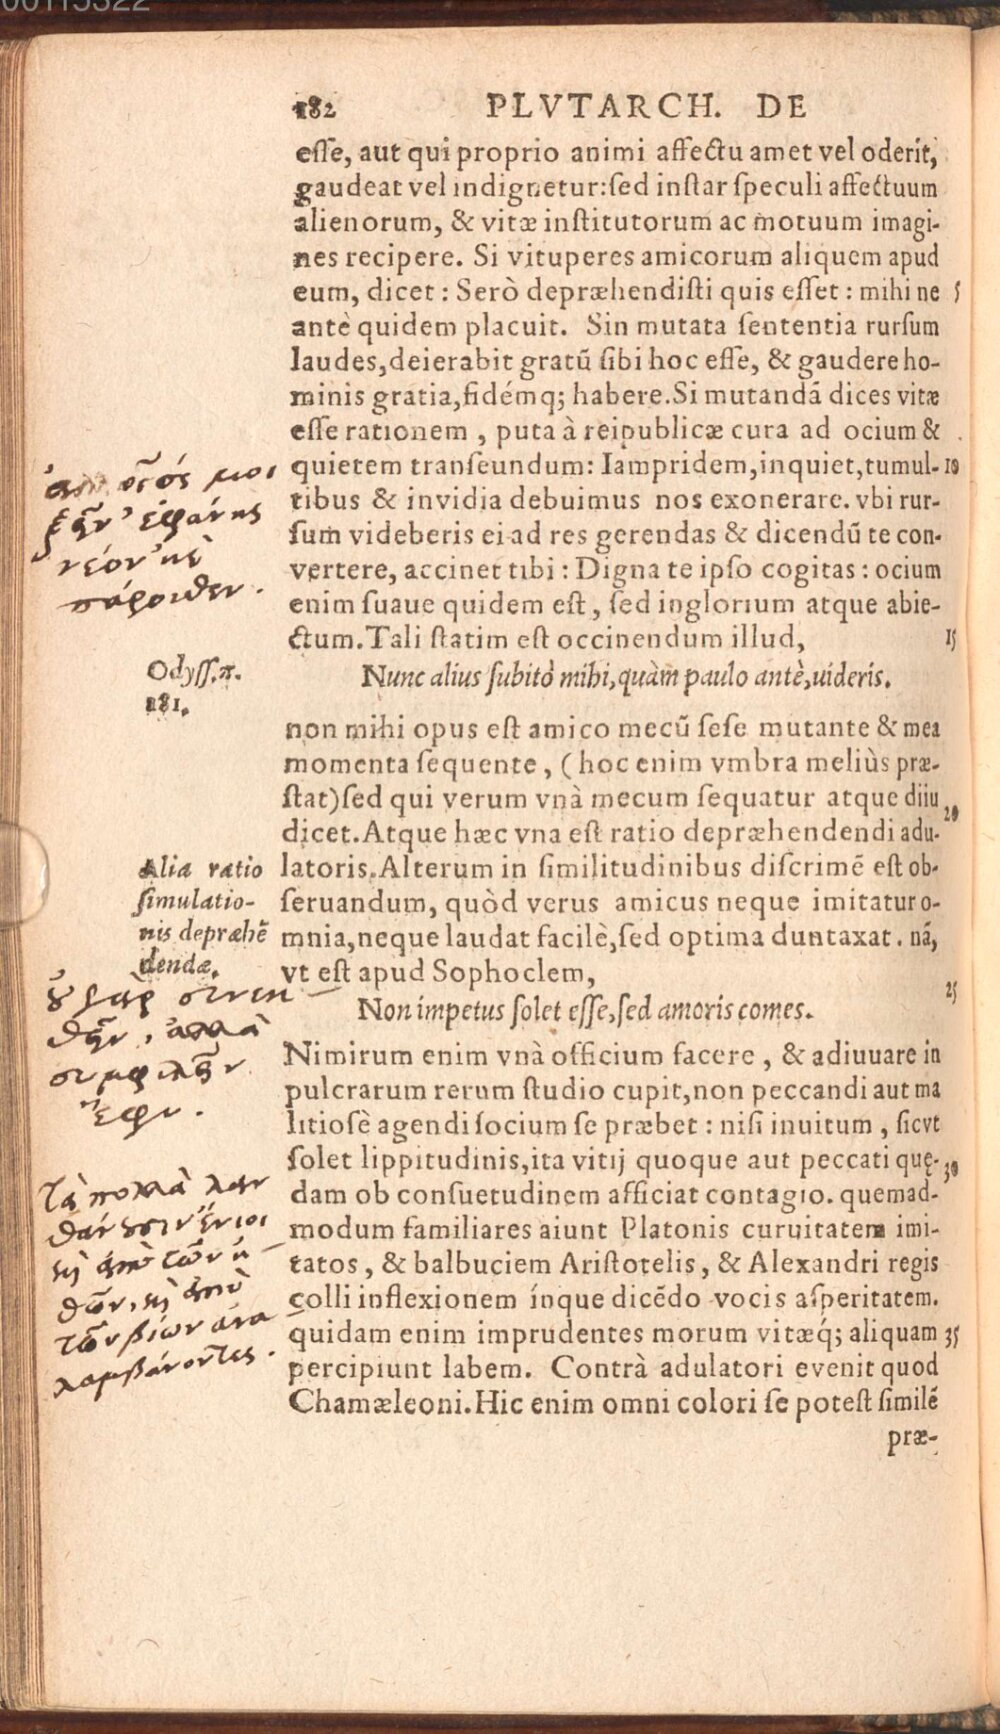 00115322
182 PLVTARCH. DE
eſſe, aut qui proprio animi affectu amet vel oderit,
gaudeat vel indignetur:ſed inſtar ſpeculi affectuum
alienorum, & vitæ inſtitutorum ac motuum imagi-
nes recipere. Si vituperes amicorum aliquem apud
eum, dicet : Serò depræhendiſti quis eſſet : mihi ne 5
antè quidem placuit. Sin mutata ſententia rurſum
laudes,deierabit gratũ ſibi hoc eſſe, & gaudere ho-
minis gratia,fidémq; habere.Si mutandã dices vitæ
eſſe rationem , puta à reipublicæ cura ad ocium &
quietem tranſeundum: Iampridem,inquiet,tumul- 10
tibus & inuidia debuimus nos exonerare. vbi rur-
ſum videberis ei ad res gerendas & dicendũ te con-
vertere, accinet tibi : Digna te ipſo cogitas : ocium
enim ſuaue quidem eſt , ſed inglorium atque abie-
ctum.Tali ſtatim eſt occinendum illud, 15
ἀλλοῖός μοι
ξεῖν' ἐφάνης
νέον ἠὲ
πάροιθεν.
Odyſſ.π.
181.
Nunc alius ſubitò mihi,quàm paulo antè,uideris.
non mihi opus eſt amico mecũ ſeſe mutante & mea
momenta ſequente , (hoc enim vmbra meliùs præ-
ſtat)ſed qui verum vnà mecum ſequatur atque diiu 20
dicet.Atque hæc vna eſt ratio depræhendendi adu-
latoris.Alterum in ſimilitudinibus diſcrimẽ eſt ob-
ſeruandum, quòd verus amicus neque imitatur o-
mnia,neque laudat facilè,ſed optima duntaxat . nã,
vt eſt apud Sophoclem, 25
Alia ratio
ſimulatio-
nis depræhẽ
dendæ.
οὐ γὰρ συνεχ
θεῖν, ἀλλὰ
συμφιλεῖν
ἔφυ.
Non impetus ſolet eſſe,ſed amoris comes.
Nimirum enim vnà officium facere , & adiuuare in
pulcrarum rerum ſtudio cupit,non peccandi aut ma
litioſè agendi ſocium ſe præbet : niſi inuitum , ſicvt
ſolet lippitudinis,ita vitij quoque aut peccati quę- 30
dam ob conſuetudinem afficiat contagio. quemad-
modum familiares aiunt Platonis curuitatem imi-
tatos , & balbuciem Ariſtotelis, & Alexandri regis
colli inflexionem ínque dicẽdo vocis aſperitatem.
quidam enim imprudentes morum vitæq́; aliquam 35
percipiunt labem. Contrà adulatori evenit quod
Chamæleoni.Hic enim omni colori ſe poteſt ſimilẽ
præ-
τὰ πολλὰ λαν
θάνουσιν ἔνιοι
καὶ ἀπὸ τῶν ἠ
θῶν, καὶ ἀπὸ
τῶν βίων ἀνα
λαμβάνοντες.